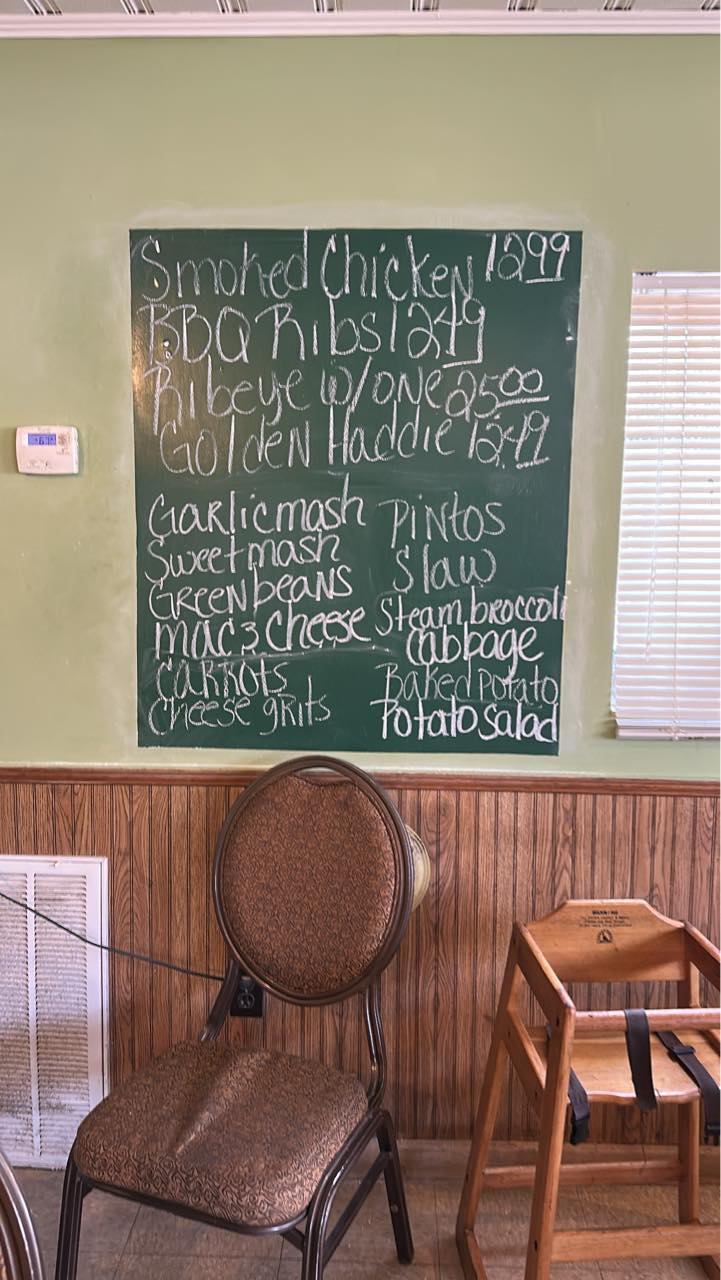 Smoked Chicken 12 99
BBQ Ribs 12 49
Ribeye w/one 25 00
Golden Haddie 12 49
Garlic mash
Sweet mash
Green beans
mac & Cheese
carrots
cheese grits
Pintos
Slaw
Steam broccoli
Cabbage
Baked Potato
Potato salad
WARNING